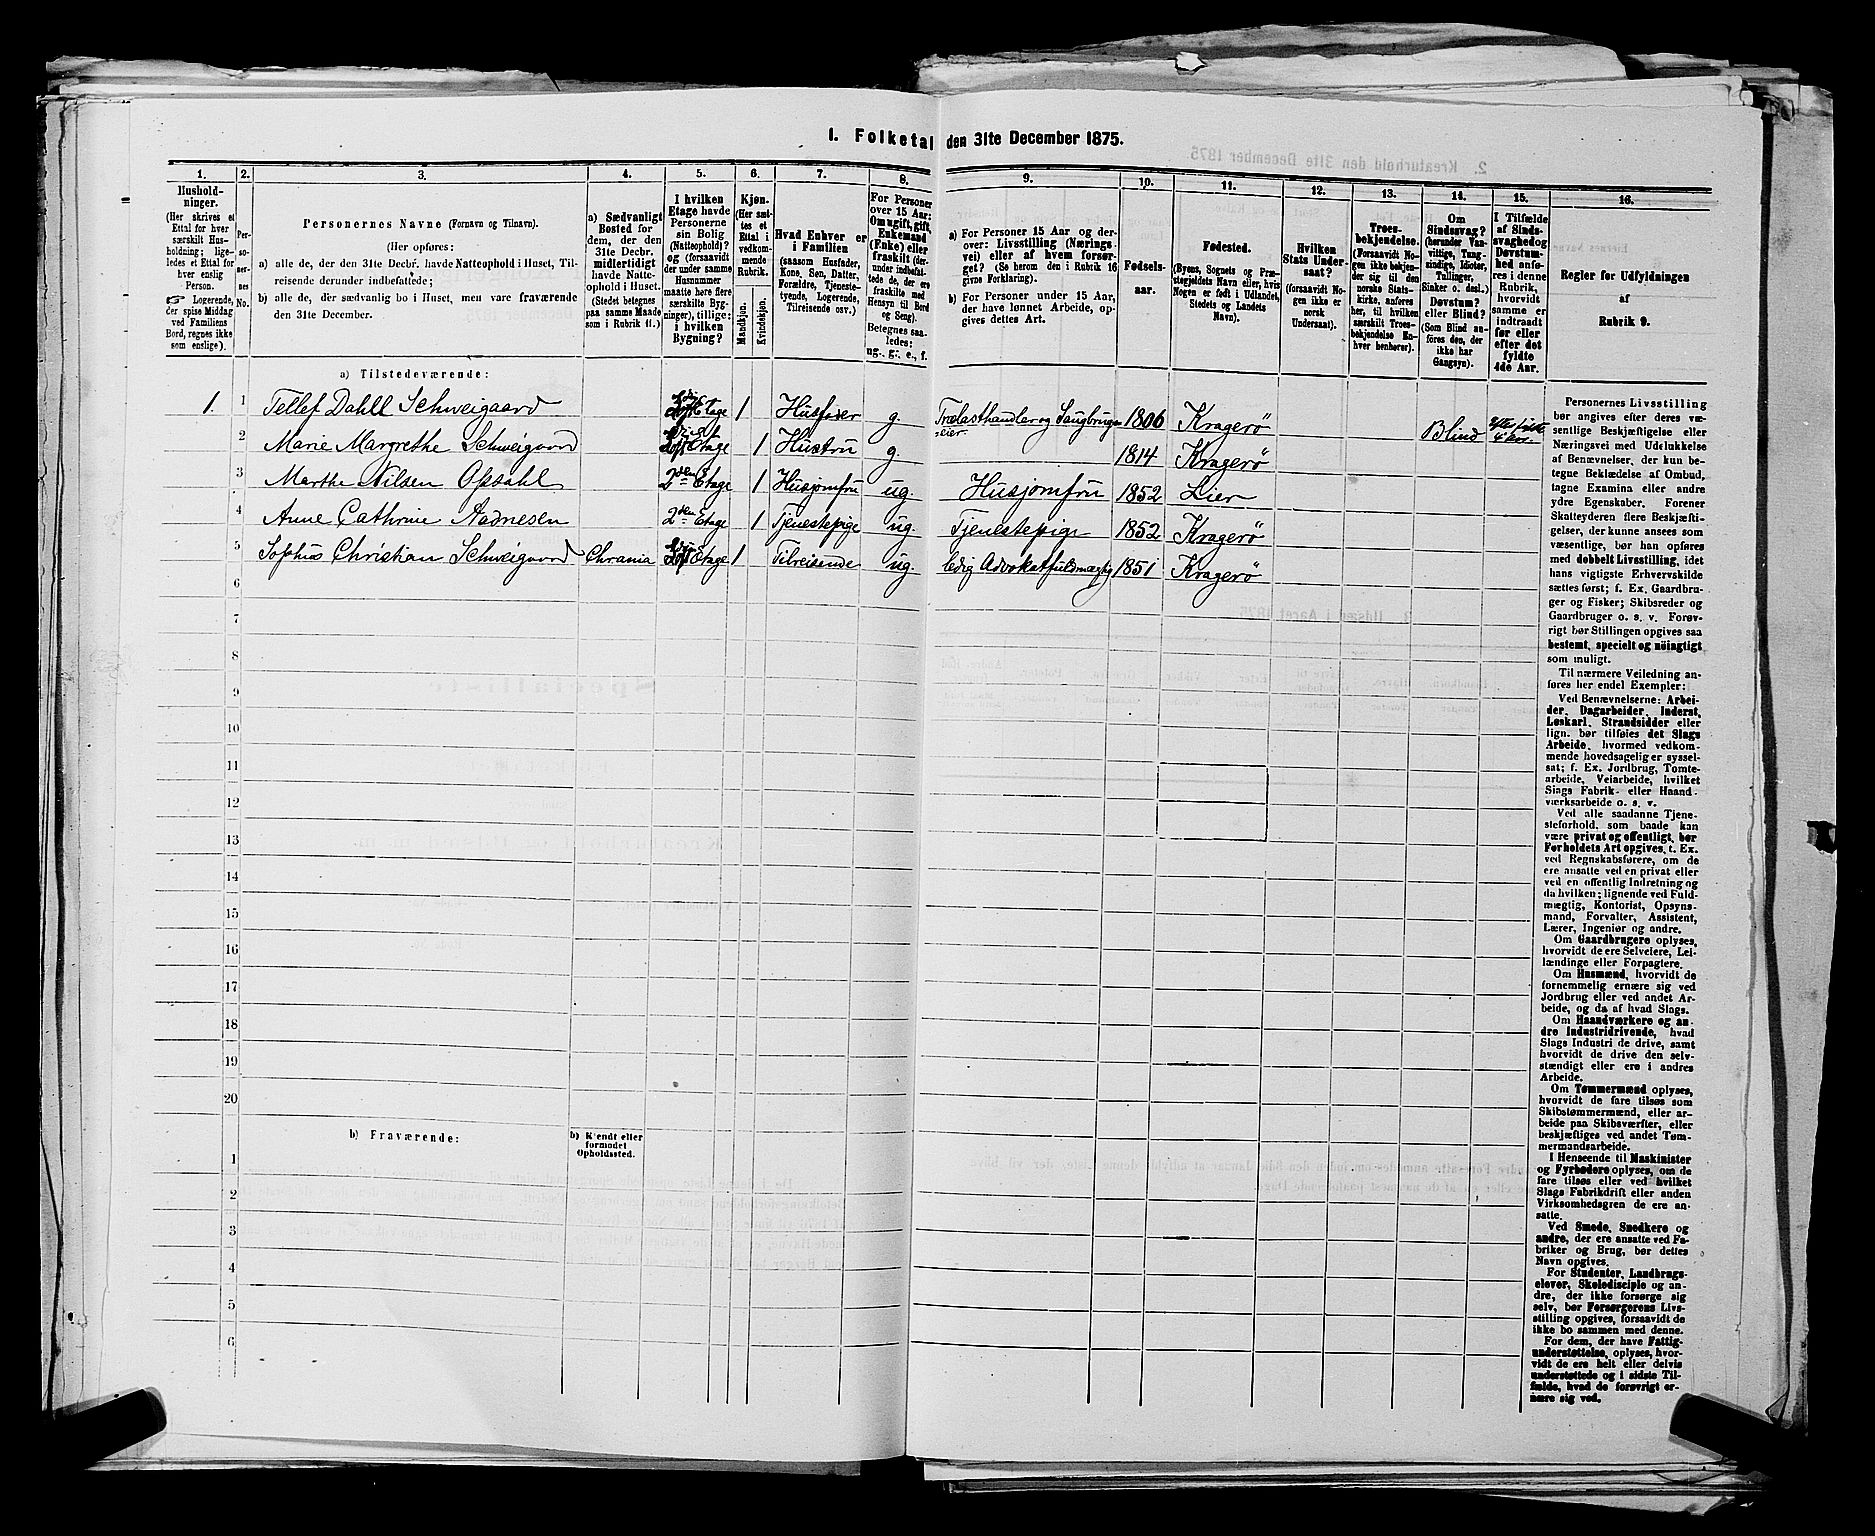 1. Folketal den 31te December 1875.
1. 2. 3. 4. 5. 6. 7. 8. 9. 10. 11. 12. 13. 14. 15. 16.
Hushold-
ninger.
(Her skrives et
Ettal for hver
særskilt Hus-
holdning; lige-
ledes et Ettal for
hver enslig
Person.
☞ Logerende,
der spise Middag
ved Familiens
Bord, regnes ikke
som enslige).
Per-
so-
ner-
nes
No.
Personernes Navne (Fornavn og Tilnavn).
(Her opføres:
a) alle de, der den 31te Decbr. havde Natteophold i Huset, Til-
reisende derunder indbefattede;
b) alle de, der sædvanlig bo i Huset, men vare fraværende
den 31te December.
a) Sædvanligt
Bosted for
dem, der den
31te Decbr.
midlertidigt
havde Natte-
ophold i Huset.
(Stedet betegnes
paa samme Maade
som i Rubrik 11.)
I hvilken
Etage havde
Personerne
sin Bolig
(Natteophold)?
og (forsaavidt
der under samme
Husnummer
maatte høre flere
særskilte Byg-
ninger), tillige:
i hvilken
Bygning?
Kjøn.
(Her sæt-
tes et
Ettal i
vedkom-
mende
Rubrik.
Mandkjøn.
Kvindekjøn.
Hvad Enhver er
i Familien
(saasom Husfader,
Kone, Søn, Datter,
Forældre, Tjeneste-
tyende, Logerende,
Tilreisende osv.)
For Personer
over 15 Aar:
Om ugift, gift,
Enkemand
(Enke) eller
fraskilt (der-
under indbefat-
tede de, der ere
fraskilte med
Hensyn til Bord
og Seng).
Betegnes saa-
ledes:
ug., g., e., f.
a) For Personer 15 Aar og der-
over: Livsstilling (Nærings-
vei) eller af hvem forsør-
get? (Se herom den i Rubrik 16
givne Forklaring).
b) For Personer under 15 Aar,
der have lønnet Arbeide, op-
gives dettes Art.
Fødsels-
aar.
Fødested.
(Byens, Sognets og Præ-
stegjeldets Navn eller, hvis
Nogen er født i Udlandet,
Stedets og Landets
Navn).
Hvilken
Stats Under-
saat?
(forsaavidt No-
gen ikke er
norsk
Undersaat).
Troes-
bekjendelse.
(Forsaavidt No-
gen ikke bekjen-
der sig til den
norske Stats-
kirke, anføres
her, til hvilken
særskilt Troes-
bekjendelse En-
hver henhører).
Om
Sindssvag?
(herunder Van-
vittige, Tung-
sindige, Idioter,
Tullinger,
Sinker o. desl.)
Døvstum?
eller Blind?
(Som Blind an-
føres den, der
ikke har
Gangsyn).
I Tilfælde
af Sinds-
svaghed og
Døvstum-
hed anfø-
res i denne
Rubrik,
hvorvidt
samme er
indtraadt
før eller
efter det
fyldte
4de Aar.
Regler for Udfyldningen
af
Rubrik 9.
a) Tilstedeværende:
1. 1 Tellef Dahll Schweigaard Etage 1 Husfader g. Trælasthandler og Saugbrugs-
eier. 1806 Kragerö Blind
2 Marie Margrethe Schweigaard Etage 1 Hustru g. 1814 Kragerö
3 Marthe Nilsen Opsahl 2den Etage 1 Husjomfru ug. Husjomfru 1852 Lier
4 Anne Cathrine Aadnesen 2den Etage 1 Tjenestepige ug. Tjenestepige 1852 Kragerö
5 Sophus Christian Schweigaard Chrania Etage 1 Tilreisende ug. ledig Advokatfuldmægtig 1851 Kragerö
6
7
8
9
10
11
12
13
14
15
16
17
18
19
20
b) Fraværende:
b) Kjendt eller
formodet
Opholdssted.
1
2
3
4
5
6
Personernes Livsstilling
bør angives efter deres væ-
sentlige Beskjæftigelse eller
Næringsvei med Udelukkelse
af Benævnelser, der kun be-
tegne Beklædelse af Ombud,
tagne Examina eller andre
ydre Egenskaber. Forener
Skatteyderen flere Beskjæfti-
gelser, der kunne ansees som
væsentlige, bør han opføres
med dobbelt Livsstilling, idet
hans vigtigste Erhvervskilde
sættes først; f. Ex. Gaardbru-
ger og Fisker; Skibsreder og
Gaardbruger o. s. v. Forøv-
rigt bør Stillingen opgives saa
bestemt, specielt og nöiagtigt
som muligt.
Til nærmere Veiledning an-
føres her endel Exempler:
Ved Benævnelserne: Arbei-
der, Dagarbeider, Inderst,
Løskarl, Strandsidder eller
lign. bør tilføies det Slags
Arbeide, hvormed vedkom-
mende hovedsagelig er syssel-
sat; f. Ex. Jordbrug, Tomte-
arbeide, Veiarbeide, hvilket
Slags Fabrik- eller Haand-
værksarbeide o. s. v.
Ved alle saadanne Tjene-
steforhold, som baade kan
være privat og offentligt, bør
Forholdets Art opgives, f. Ex.
ved Regnskabsførere, om de
ere ansatte ved en privat eller
ved en offentlig Indretning og
da hvilken; lignende ved Fuld-
mægtig, Kontorist, Opsyns-
mand, Forvalter, Assistent,
Lærer, Ingeniør og andre.
Om Gaardbrugere oplyses,
hvorvidt de ere Selveiere, Lei-
lændinge eller Forpagtere.
Om Husmænd, hvorvidt de
fornemmelig ernære sig ved
Jordbrug eller ved andet Ar-
beide, og da af hvad Slags.
Om Haandværkere og an-
dre Industridrivende, hvad
Slags Industri de drive, samt
hvorvidt de drive den selv-
stændigt eller ere i andres
Arbeide.
Om Tømmermænd oplyses,
hvorvidt de fare tilsøs som
Skibstømmermænd, eller ar-
beide paa Skibsværfter, eller
beskjæftiges ved andet Tøm-
mermandsarbeide.
I Henseende til Maskinister
og Fyrbødere oplyses, om de
fare tilsøs eller ved hvilket
Slags Fabrikdrift eller anden
Virksomhedsgren de ere an-
satte.
Ved Smede, Snedkere og
andre, der ere ansatte ved Fa-
briker og Brug, bør dettes
Navn opgives.
For Studenter, Landbrugs-
elever, Skoledisciple og an-
dre, der ikke forsørge sig
selv, bør Forsørgerens Livs-
stilling opgives, forsaavidt de
ikke bo sammen med denne.
For dem, der have Fattig-
understøttelse, oplyses, hvor-
vidt de ere helt eller delvis
understøttede og i sidste Til-
fælde, hvad de forøvrigt er-
nære sig ved.